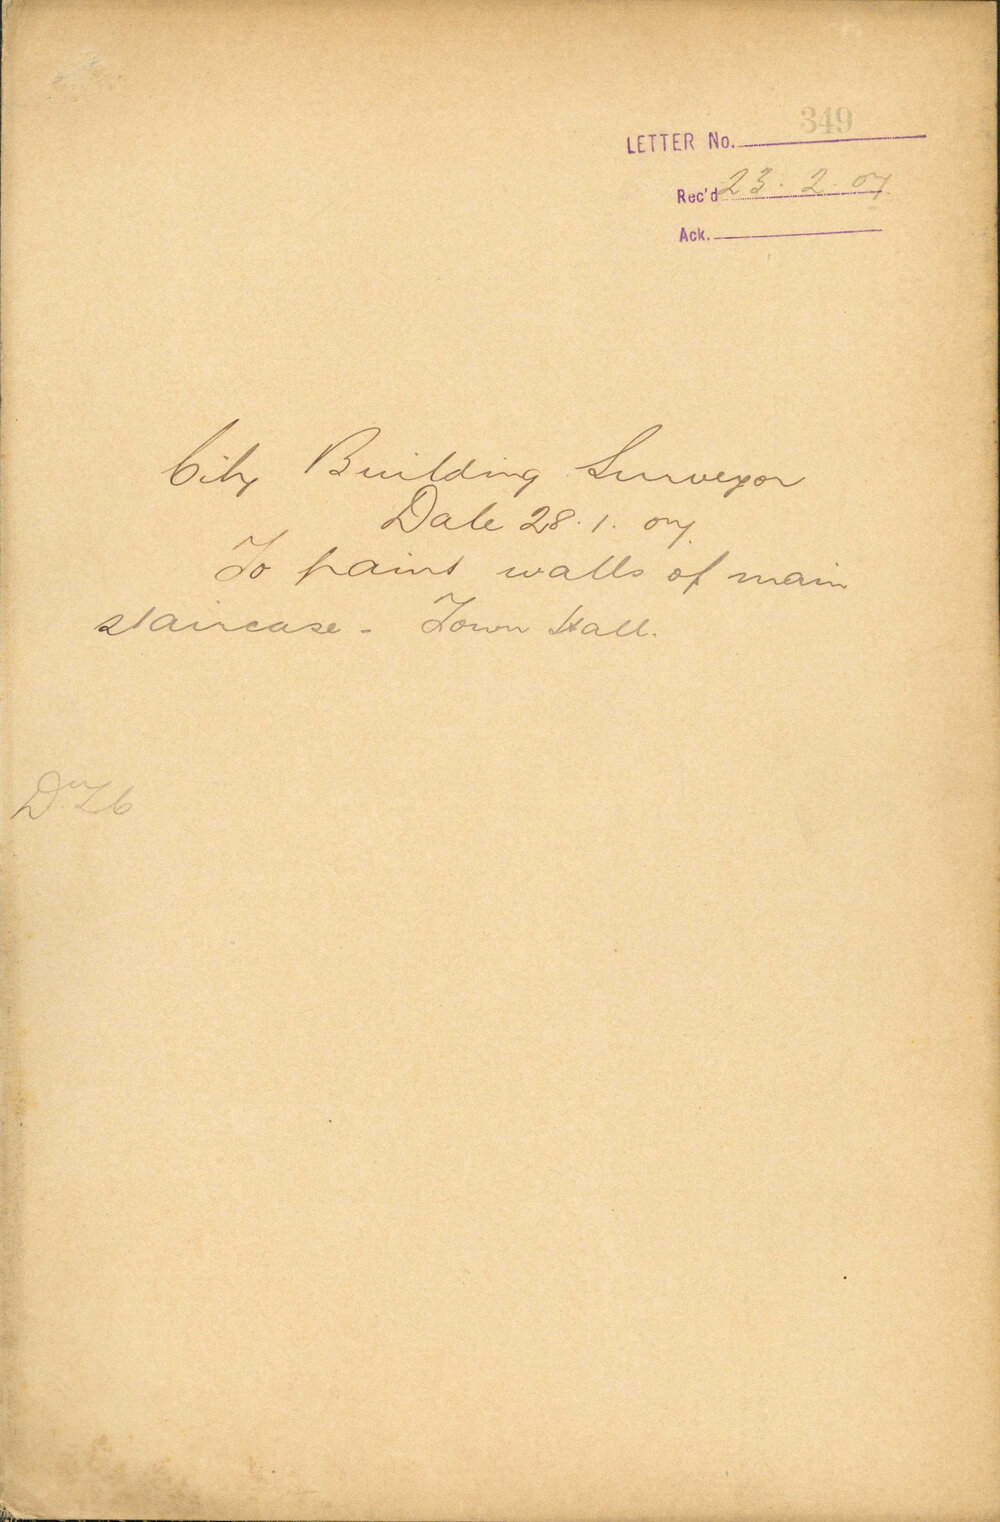 349
LETTER No.
Rec'd 23. 2. 07
Ack.
City Building Surveyor
Date 28. 1. 07.
To paint walls of main
staircase - Town Hall.